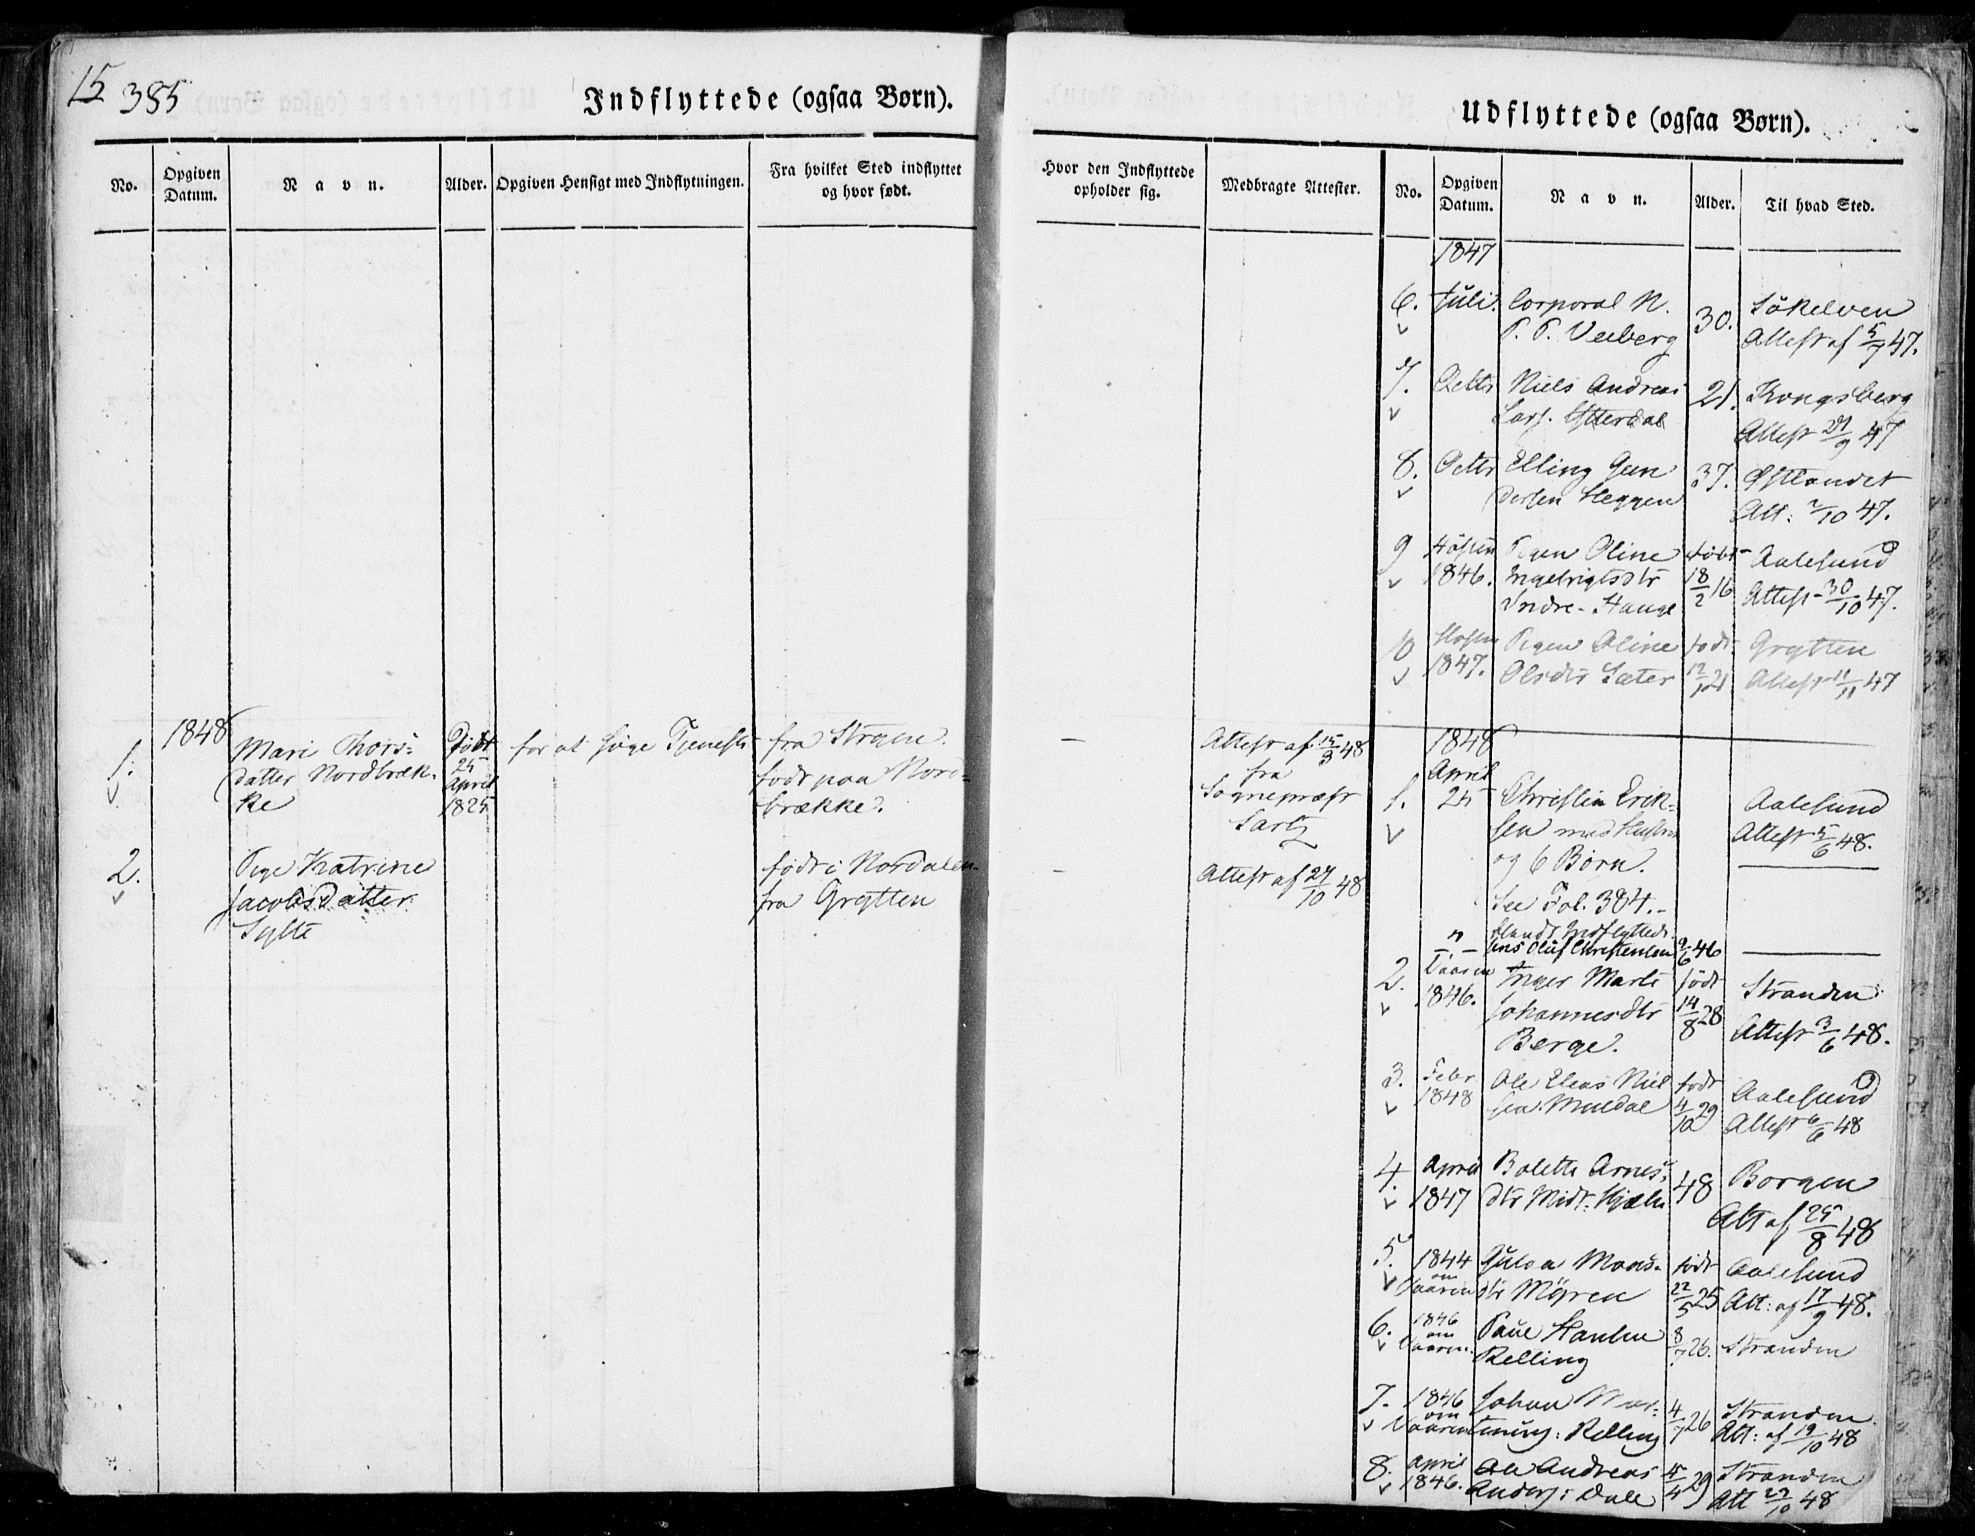 15 385
Indflyttede (ogsaa Børn).
No.
Opgiven
Datum.
Navn.
Alder.
Opgiven Hensigt med Indflytningen.
Fra hvilket Sted indflyttet
og hvor født.
1848
1.
Mari Thors-
datter Nordbræk-
ke
Født
25
April
1825
for at søge Tjeneste
fra Stryen.
født paa Nord-
brække.
2.
Pige Katrine
Jacobsdatter
Sylte
født i Nordalen
fra Grytten
Udflyttede (ogsaa Børn).
Hvor den Indflyttede
opholder sig.
Medbragte Attester.
No.
Opgiven
Datum.
Navn.
Alder.
Til hvad Sted.
–
Attest af 15/3 48
fra
Sognepræst
–
Attest af 27/10 48
1847
6. Juli. Corporal N. 30. Søkelven
P. P. Veiberg Attest af 5/7 47.
7. Octbr Niels Andreas 21. Kongsberg
Lars. Ytterdal Attest 29/9 47
8. Octbr Elling Gun 37. Østlandet
dersen Heggen Att: 7/10 47.
9 Høsten Pigen Oline født Aalesund
1846. Ingebrigtsdtr 18/2 16 Attest 30/10 47.
Indre-Hauge
10 Høsten Pigen Oline født Grytten
1847. Olsdtr Sæter 12/10 21 Attest 11/11 47
1848
April
1. 25 Christen Erik- Aalesund
sen med Hustru Attest 5/6 48.
og 6 Børn.
See Fol. 384.-
blandt Indflyttede
" Jens Oluf Christensen 9/6 46
2. Vaaren Inger Marte født Stranden
1846. Johannesdtr 14/8 28 Attest 3/6 48.
Berge.
3. Febr Ole Elias Niel født Aalesund
1848 sen Muldal 4/10 29 Attest 6/6 48
4. April Bolette Arnes- 48 Borgen
1847 dtr Midt-Hjelle Att af 25/8 48
5. 1844 Mons- født Aalesund
om
Vaaren dtr Møgren 22/5 25 Att: af 17/9 48.
6. 1846 Paul Hansen 8/7 26. Stranden
om
Vaaren. Relling
7. 1846 Johan Mar- 4/7 26 Stranden
om
Vaaren Relling Att: af 19/10 48
8. April Ole Andreas 15/4 29 Stranden
1846. Anders: Dale Att 22/10 48